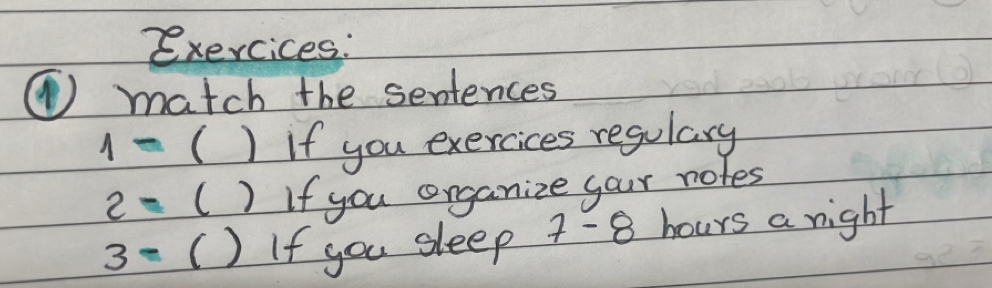 Exercices:
① match the sentences
1 - ( ) If you exercices regulary
2 - ( ) If you organize your notes
3 - ( ) If you sleep 7-8 hours a night